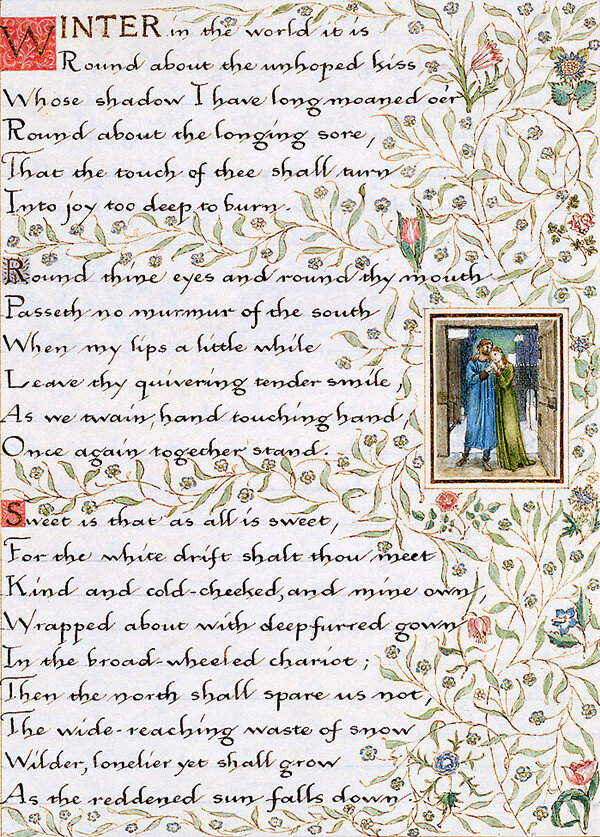 WINTER in the world it is
Round about the unhoped kiss
Whose shadow I have long moaned o'er
Round about the longing sore,
That the touch of thee shall turn
Into joy too deep to burn.
Round thine eyes and round thy mouth
Passeth no murmur of the south
When my lips a little while
Leave thy quivering tender smile,
As we twain, hand touching hand
Once again together stand.
Sweet is that as all is sweet,
For the white drift shalt thou meet
Kind and cold-cheeked, and mine own,
Wrapped about with deepfurred gown
In the broad-wheeled chariot;
Then the north shall spare us not,
The wide-reaching waste of snow
Wilder, lonelier yet shall grow
As the reddened sun falls down.